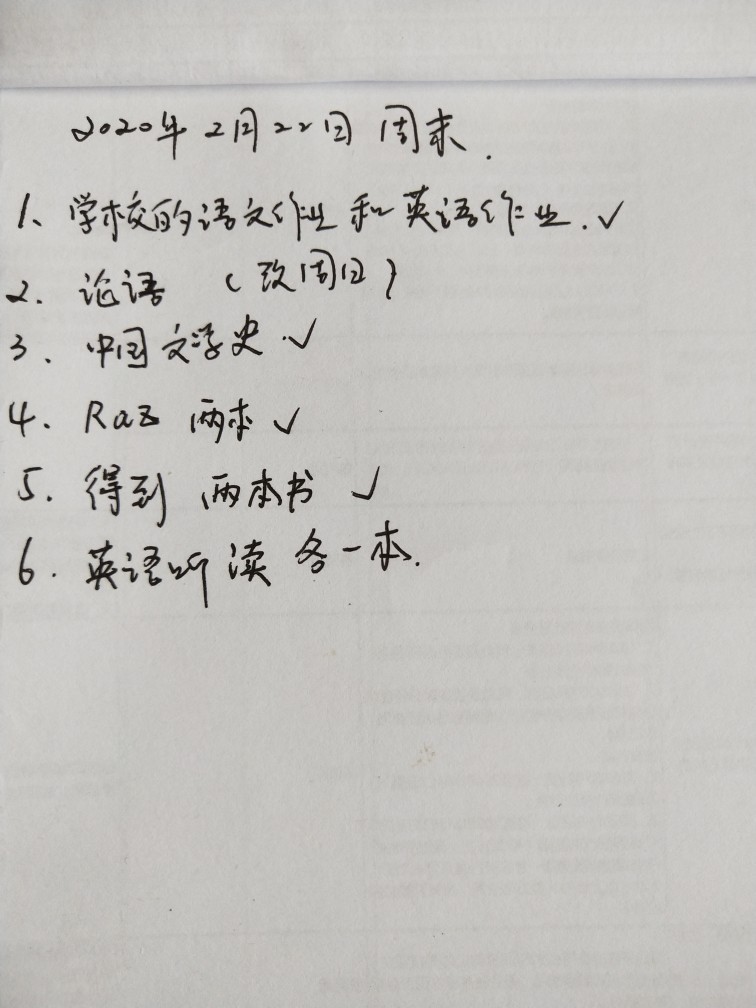 2020年2月22日 周末.
1、学校的语文作业和英语作业.✓
2. 论语 (改周日)
3、中国文学史.✓
4、Raz 两本 ✓
5. 得到 两本书 ✓
6. 英语听读各一本.